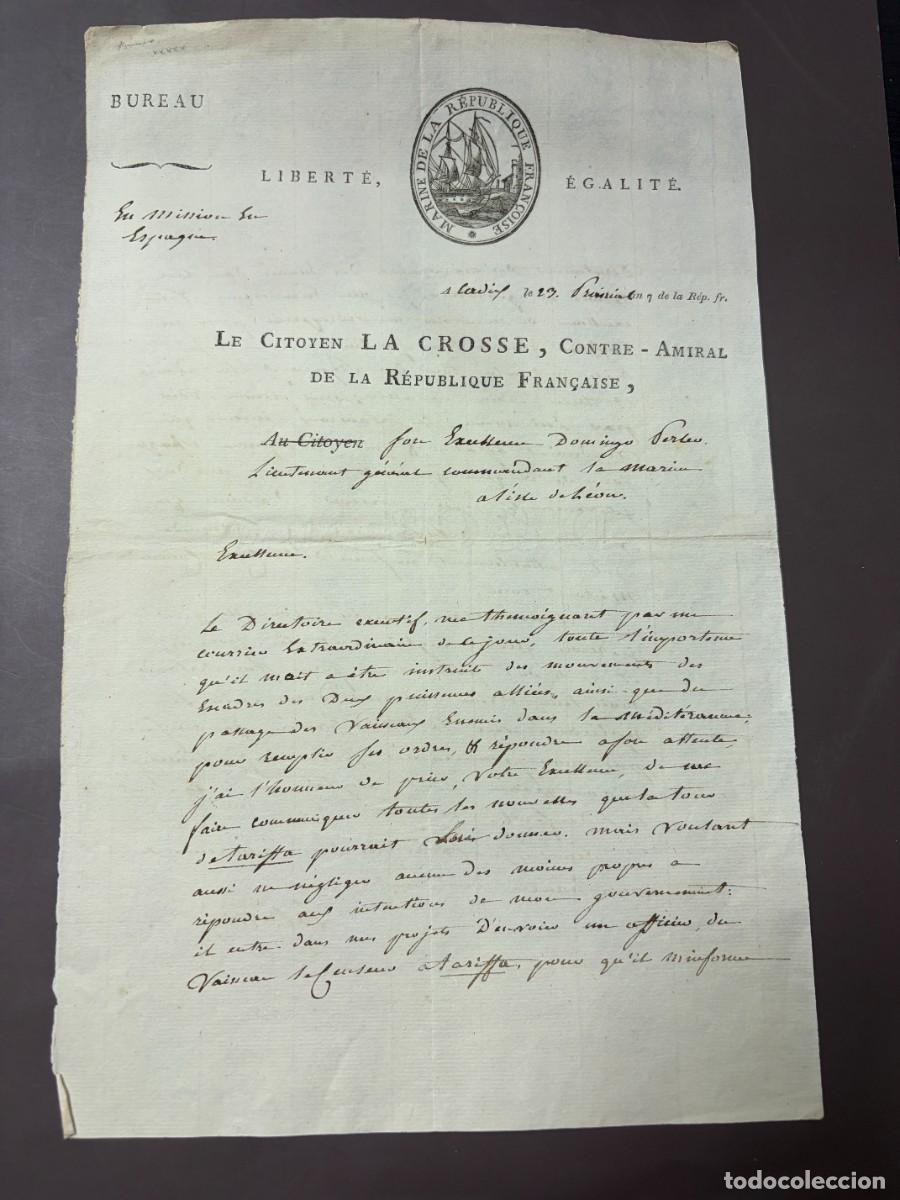 BUREAU
MARINE DE LA RÉPUBLIQUE FRANÇOISE
LIBERTÉ, ÉGALITÉ.
En mission En
Espagne.
A Cadix le 23. Prairial an 7 de la Rép. fr.
LE CITOYEN LA CROSSE, CONTRE-AMIRAL
DE LA RÉPUBLIQUE FRANÇAISE,
Au Citoyen son Excellence Domingo
Lieutenant général commandant la marine
a l'isle de Léon.
Excellence.
Le Directoire executif, me themoignant par un
courrier Extraordinaire de ce jour, toute l'importance
qu'il mait a être instruit des mouvements des
Escadres des Deux puissances alliées, ainsi que du
passage des Vaisseaux Ennemis dans la Méditérannée;
pour remplir ses ordres, & répondre a son attente,
j'ai l'honneur de prier, Votre Excellence, de me
faire communiquer toutes les nouvelles que la tour
de tariffa pourrait donner. mais voulant
aussi ne négliger aucun des moiens propres a
répondre aux intentions de mon gouvernement:
il entre dans mes projets D'envoier un officier, du
Vaisseau le Censeur a tariffa, pour qu'il m'informe
todocoleccion